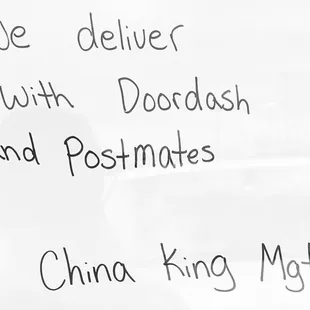 We deliver
With Doordash
and Postmates
China King Mgt